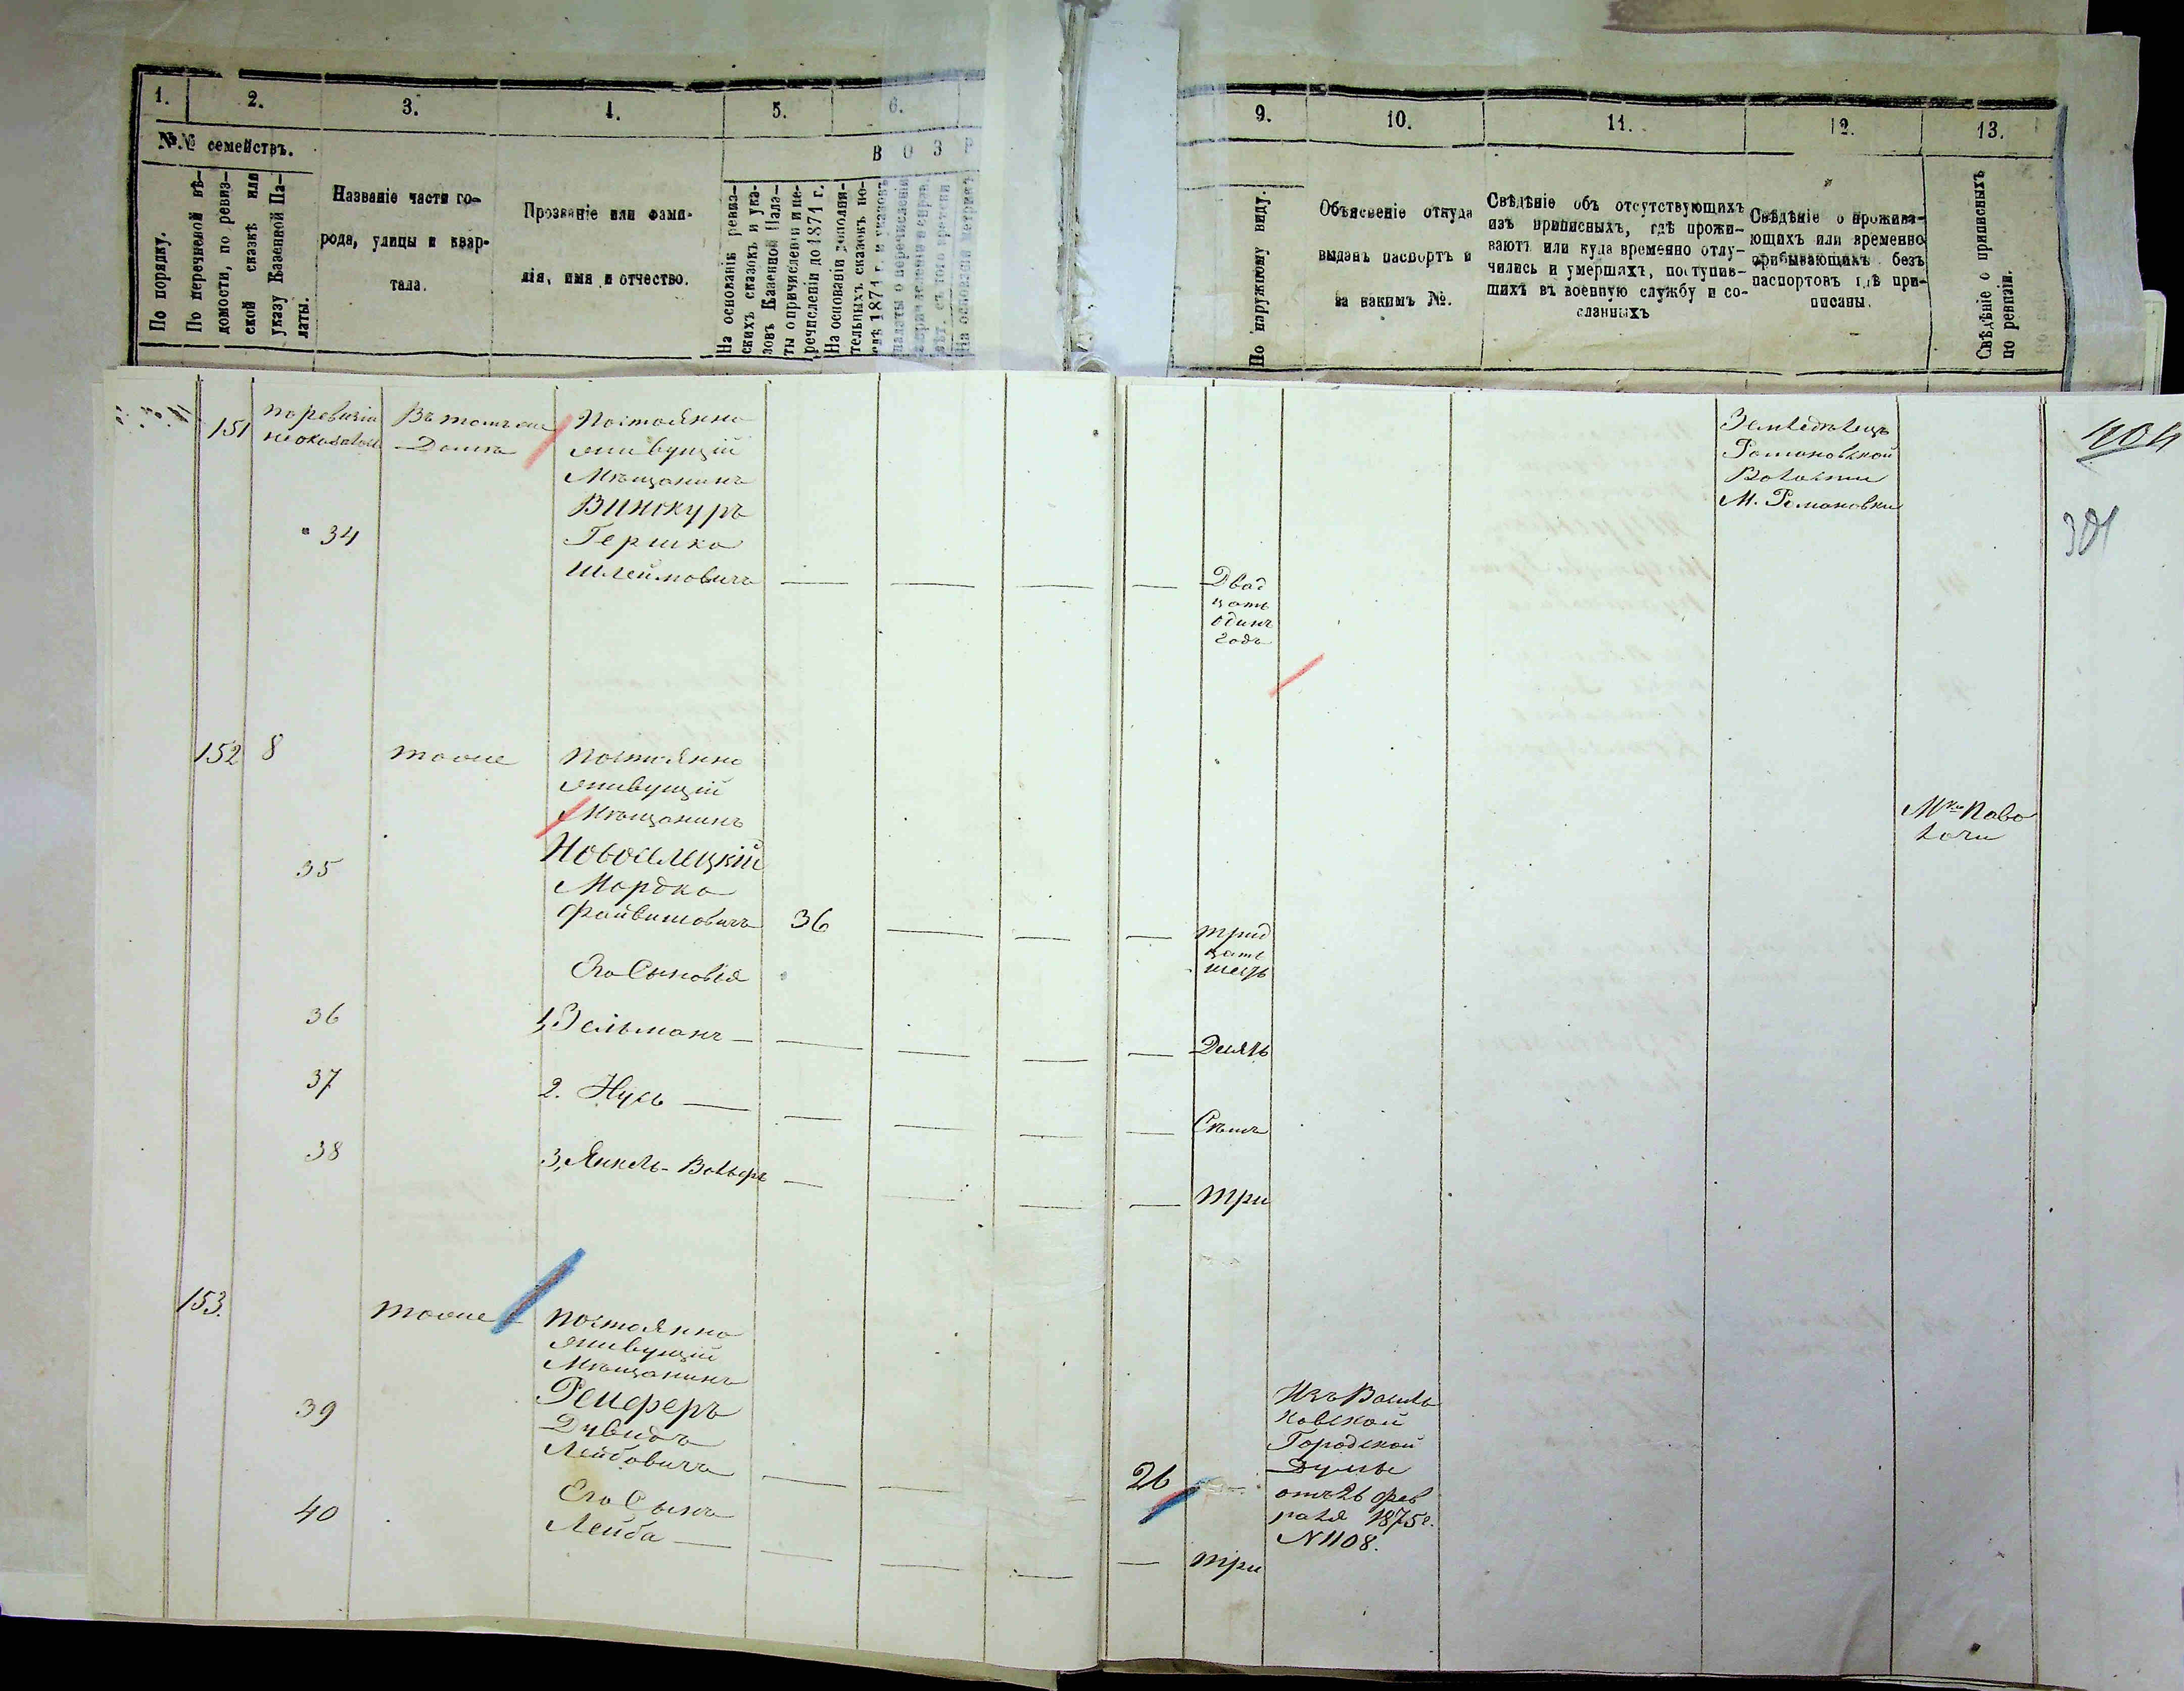 1.
2.
3.
4.
5.
6.
№№ семействъ.
В О З Р
По порядку.
По перечневой вѣ-
домости, по ревиз-
ской сказкѣ или
указу Казенной Па-
латы.
Названіе части го-
рода, улицы и квар-
тала.
Прозваніе или фами-
лія, имя и отчество.
На основаніи ревиз-
скихъ сказокъ и ука-
зовъ Казенной Пала-
ты о причисленіи и пе-
речисленіи до 1871 г.
На основаніи дополни-
тельныхъ сказокъ по-
слѣ 1871 г. и указовъ
палаты о перечисленіи
На основаніи метрикъ
9.
10.
11.
12.
13.
По наружному виду.
Объясненіе откуда
выданъ паспортъ и
за какимъ №.
Свѣдѣніе объ отсутствующихъ
изъ приписныхъ, гдѣ прожи-
ваютъ или куда временно отлу-
чились и умершихъ, поступив-
шихъ въ военную службу и со-
сланныхъ
Свѣдѣніе о прожива-
ющихъ или временно
прибывающихъ безъ
паспортовъ гдѣ при-
писаны.
Свѣдѣніе о приписныхъ
по ревизіи.
151
по ревизіи
не оказался
Въ томъ же
Домѣ
Постоянно
живущій
Мѣщанинъ
Винокуръ
34
Гершко
Шлеймовичъ
Двад
цать
одинъ
годъ
Земледѣлецъ
Романовской
Волости
М. Романовки
404
301
152
8
тоже
Постоянно
живущій
Мѣщанинъ
Новоселецкій
35
Мордко
Файвишовичъ
36
трид
цать
шесть
Мко Паво
лочи
Его Сыновья
36
1, Зельманъ
Десять
37
2. Нусь
Семь
38
3, Янкель-Вольфъ
три
153.
тоже
Постоянно
живущій
Мѣщанинъ
39
Рейферъ
Дувидъ
Лейбовичъ
26
Изъ Василь
ковской
Городской
Думы
отъ 26 фев
раля 1875 г.
N 1108.
40
Его Сынъ
Лейба
три